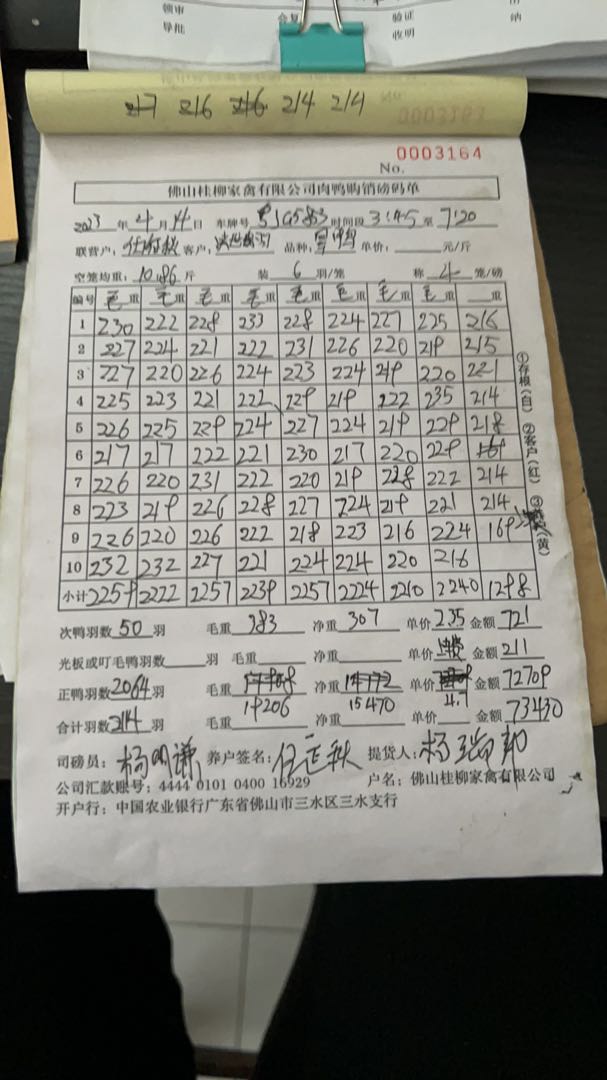 领审
导批
会复
验证
收明
纳
217 216 216 214 214
0003183
No. 0003164
佛山桂柳家禽有限公司肉鸭购销磅码单
2023 年 4 月 14 日 车牌号 时间段 3:45 至 7:20
联营户: 客户: 品种: 单价: 元/斤
空笼均重: 10.86 斤 装 6 羽/笼 称 4 笼/磅
编号 毛重 毛重 毛重 毛重 毛重 毛重 毛重 毛重 重
1 230 222 228 233 228 224 227 225 216
2 227 224 221 222 231 226 220 219 215
3 227 220 226 224 223 224 219 220 221
4 225 223 221 222 229 219 222 235 214
5 226 225 229 224 227 224 219 229 218
6 217 217 222 221 230 217 220 229
7 226 220 231 222 220 219 228 222 214
8 223 219 226 228 227 224 219 221 214
9 226 220 226 222 218 223 216 224 169
10 232 232 227 221 224 224 220 216
小计 2259 2222 2257 2239 2257 2224 2210 2240 1298
①存根(白) ②客户(红) ③ (黄)
次鸭羽数 50 羽 毛重 383 净重 307 单价 2.35 金额 721
光板或叮毛鸭羽数 羽 毛重 净重 单价 金额 211
正鸭羽数 2064 羽 毛重 净重 单价 金额 72709
19206 15470 4.7
合计羽数 2114 羽 毛重 净重 单价 金额 73430
司磅员: 杨明谦 养户签名: 任延秋 提货人: 杨瑞邦
公司汇款账号: 4444 0101 0400 16929 户名: 佛山桂柳家禽有限公司
开户行: 中国农业银行广东省佛山市三水区三水支行